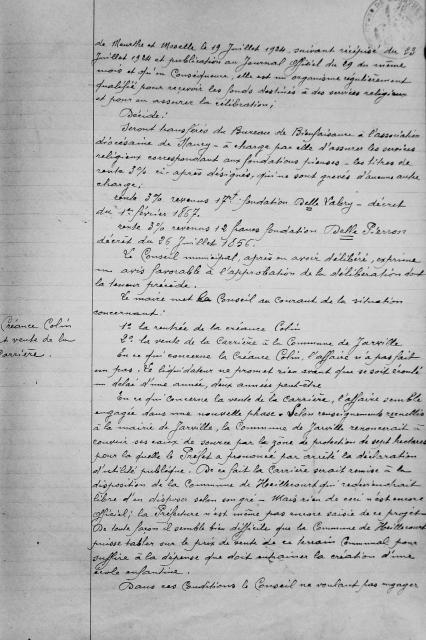 de Meurthe et Moselle le 19 Juillet 1924, suivant récépissé du 23
Juillet 1924 et publication au Journal Officiel du 29 du même
mois et qu'en Conséquence, elle est un organisme régulièrement
qualifié pour recevoir les fonds destinés à des services religieux
et pour en assurer la célébration;
Décide:
Seront transférés du Bureau de Bienfaisance à l'association
diocésaine de Nancy - à charge par elle d'assurer les services
religieux correspondant aux fondations pieuses - les titres de
rente 3% ci-après désignés, qui ne sont grevés d'aucune autre
charge;
rente 3% revenus fondation Delle Valery - décret
du 1er février 1867.
rente 3% revenus 12 francs fondation Delle Pierron
décret du 26 Juillet 1856.
Le Conseil municipal, après en avoir délibéré, exprime
un avis favorable à l'approbation de la délibération dont
la teneur précède.
Le maire met le Conseil au Courant de la situation
concernant:
Créance Colin
et vente de la
Carrière.
1° la rentrée de la créance Colin
2° la vente de la Carrière à la Commune de Jarville
En ce qui concerne la Créance Colin, l'affaire n'a pas fait
un pas. Le liquidateur ne promet rien avant que se soit écoulé
un délai d'une année, deux années peut-être
En ce qui concerne la vente de la Carrière, l'affaire semble
engagée dans une nouvelle phase. Selon renseignements recueillis
à la mairie de Jarville, la Commune de Jarville renoncerait à
couvrir ses eaux de source par la zone de protection de sept hectares
pour laquelle le Préfet a prononcé par arrêté la déclaration
d'utilité publique. De ce fait la Carrière serait remise à la
disposition de la Commune de Heillecourt qui redeviendrait
libre d'en disposer selon son gré - Mais rien de ceci n'est encore
officiel; la Préfecture n'est même pas encore saisie de ce projet.
De toute façon il semble bien difficile que la Commune de Heillecourt
puisse tabler sur le prix de vente de ce terrain Communal pour
suffire à la dépense que doit entraîner la création d'une
école enfantine.
Dans ces Conditions le Conseil ne voulant pas engager